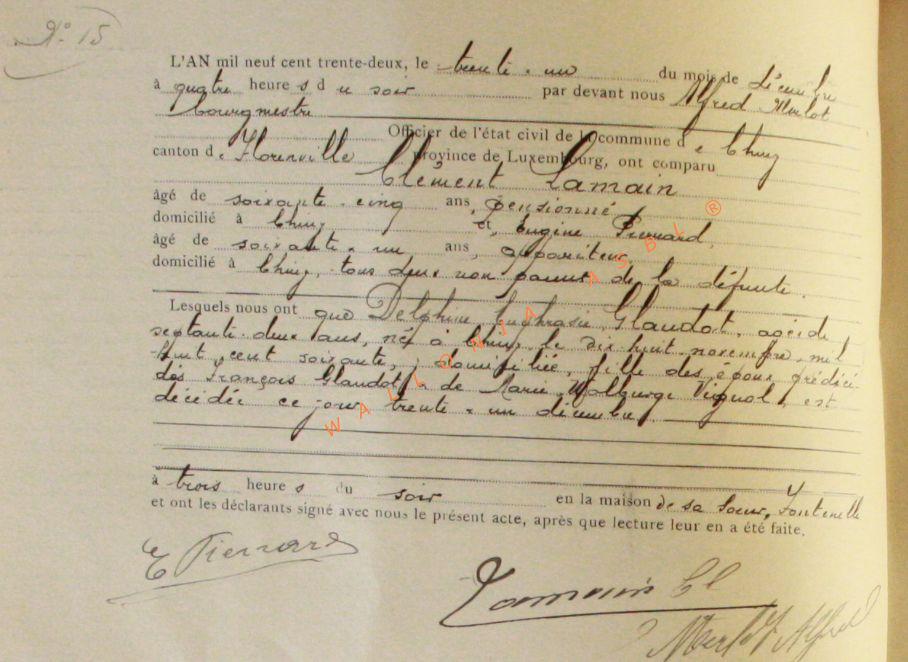 N° 15
L'AN mil neuf cent trente-deux, le trente-un du mois de décembre
à quatre heures du soir par devant nous Alfred Merlot
bourgmestre
Officier de l'état civil de la commune de Chiny
canton de Florenville province de Luxembourg, ont comparu
Clément Lamain
âgé de soixante cinq ans, pensionné,
domicilié à Chiny et Eugène Pierrard,
âgé de soixante-un ans, appariteur,
domicilié à Chiny, tous deux non parents de la défunte.
Lesquels nous ont que Delphine Euphrasie Glaudot, agée de
septante-deux ans, née à Chiny le dix huit novembre mil
huit cent soixante, y domiciliée, fille des époux prédécé-
dés François Glaudot, de Marie Walburge Vignol, est
décédée ce jour trente-un décembre
à trois heures du soir en la maison de sa soeur, Fontenelle
et ont les déclarants signé avec nous le présent acte, après que lecture leur en a été faite.
E Pierrard
Lamain Cl
Merlot Alfred
WALLONIA ASBL ®